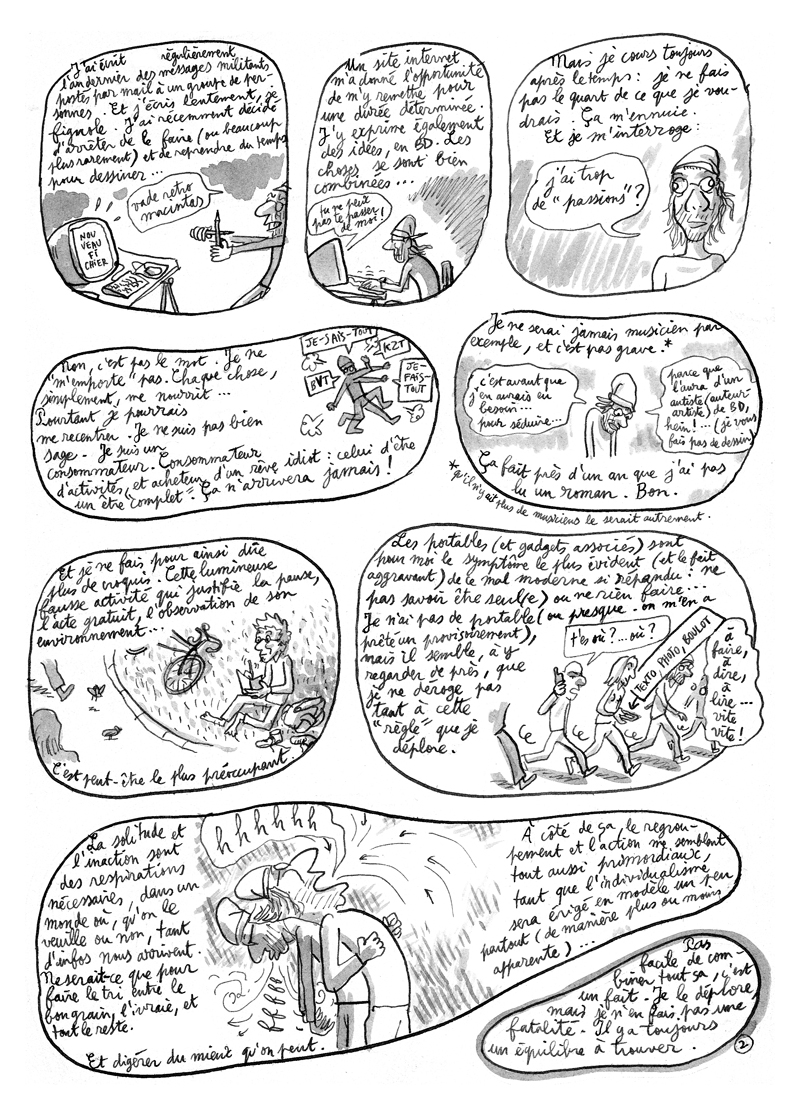 J'ai écrit régulièrement
l'an dernier des messages militants
postés par mail à un groupe de per-
sonnes. Et j'écris lentement, je
fignole. J'ai récemment décidé
d'arrêter de le faire (ou beaucoup
plus rarement) et de reprendre du temps
pour dessiner...
vade retro
macintas
NOU
VEAU
FI
CHIER
Un site internet
m'a donné l'opportunité
de m'y remettre pour
une durée déterminée.
J'y exprime également
des idées, en BD. Les
choses se sont bien
combinées...
tu ne peux
pas te passer
de moi!
Mais je cours toujours
après le temps : je ne fais
pas le quart de ce que je vou-
drais. Ça m'ennuie.
Et je m'interroge :
j'ai trop
de "passions"?
Non, c'est pas le mot. Je ne
m'emporte pas. Chaque chose,
simplement, me nourrit...
Pourtant je pourrais
me recentrer. Je ne suis pas bien
sage. Je suis un
consommateur. Consommateur
d'activités, et acheteur d'un rêve idiot : celui d'être
un être "complet". Ça n'arrivera jamais!
JE-SAIS-TOUT
KZT
BVT
JE-
FAIS-
TOUT
Je ne serai jamais musicien par
exemple, et c'est pas grave.*
c'est avant que
j'en aurais eu
besoin...
pour séduire...
parce que
l'aura d'un
artiste (auteur-
artiste) de BD,
hein!... (je vous
fais pas de dessin)
Ça fait près d'un an que j'ai pas
lu un roman. Bon.
*qu'il n'y ait plus de musiciens le serait autrement.
Et je ne fais pour ainsi dire
plus de croquis. Cette lumineuse
fausse activité qui justifie la pause,
l'acte gratuit, l'observation de son
environnement...
C'est peut-être le plus préoccupant.
Les portables (et gadgets associés) sont
pour moi le symptôme le plus évident (et le fait
aggravant) de ce mal moderne si répandu : ne
pas savoir être seul(e) ou ne rien faire...
Je n'ai pas de portable (ou presque. on m'en a
prêté un provisoirement),
mais il semble, à y
regarder de près, que
je ne déroge pas
tant à cette
"règle" que je
déplore.
t'es où?... où?
TEXTO PHOTO BOULOT
à
faire,
à
dire,
à
lire...
vite
vite!
La solitude et
l'inaction sont
des respirations
nécessaires, dans un
monde où, qu'on le
veuille ou non, tant
d'infos nous arrivent.
Ne serait-ce que pour
faire le tri entre le
bon grain, l'ivraie, et
tout le reste.
Et digérer du mieux qu'on peut.
hhhhhh
À côté de ça, le regrou-
pement et l'action me semblent
tout aussi primordiaux,
tant que l'individualisme
sera érigé en modèle un peu
partout (de manière plus ou moins
apparente)...
Pas
facile de com-
biner tout ça, c'est
un fait. Je le déplore,
mais je n'en fais pas une
fatalité. Il y a toujours
un équilibre à trouver.
2